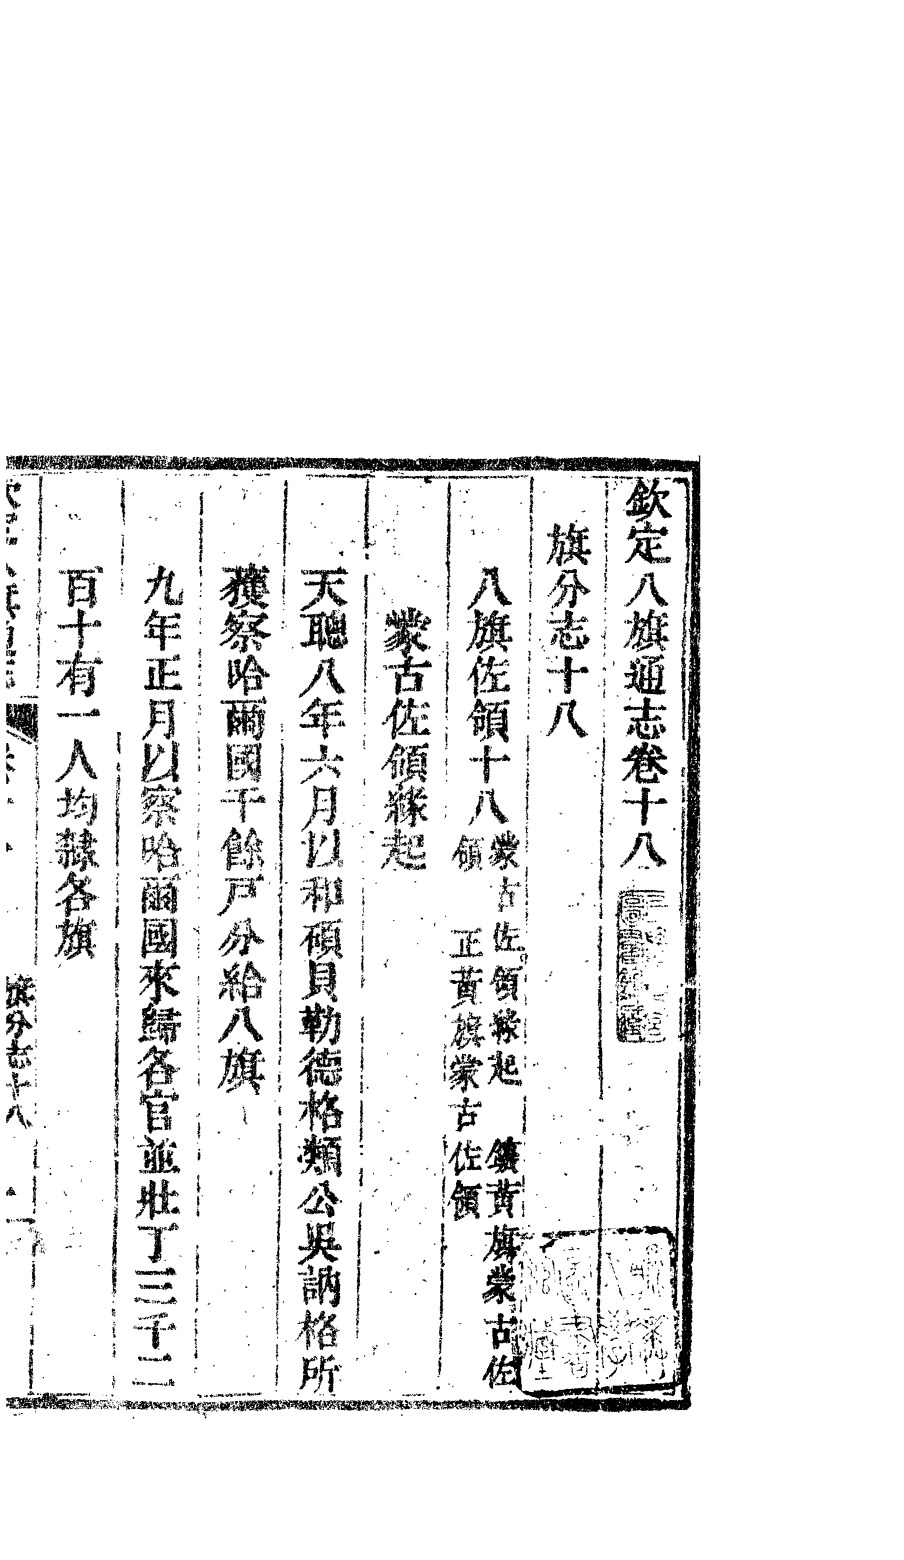 欽定八旗通志卷十八
旗分志十八
八旗佐領十八 蒙古佐領緣起 鑲黃旗蒙古佐領 正黃旗蒙古佐領
蒙古佐領緣起
天聰八年六月以和碩貝勒德格類公吳訥格所
獲察哈爾國千餘戸分給八旗
九年正月以察哈爾國來歸各官並壯丁三千二
百十有一人均隸各旗
旗分志十八 一